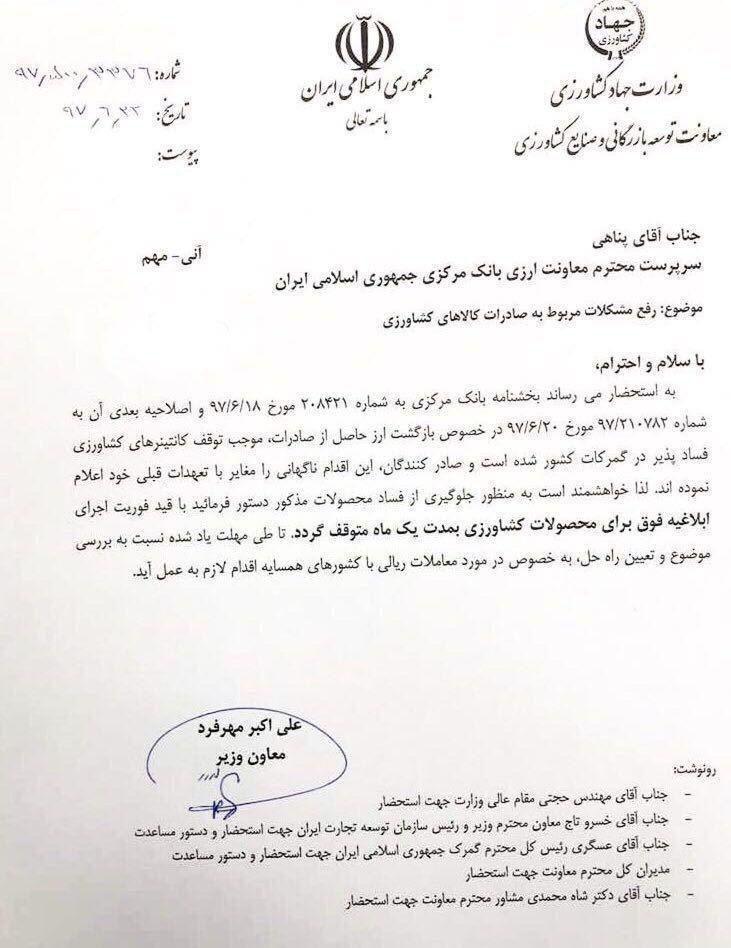 همه با هم
جهاد
کشاورزی
وزارت جهاد کشاورزی
معاونت توسعه بازرگانی و صنایع کشاورزی
جمهوری اسلامی ایران
باسمه تعالی
شماره: ۹۷/۵۰۰/۳۳۷۶
تاریخ: ۹۷/۶/۲۲
پیوست:
جناب آقای پناهی
آنی- مهم
سرپرست محترم معاونت ارزی بانک مرکزی جمهوری اسلامی ایران
موضوع: رفع مشکلات مربوط به صادرات کالاهای کشاورزی
با سلام و احترام،
به استحضار می رساند بخشنامه بانک مرکزی به شماره ۲۰۸۴۲۱ مورخ ۹۷/۶/۱۸ و اصلاحیه بعدی آن به
شماره ۹۷/۲۱۰۷۸۲ مورخ ۹۷/۶/۲۰ در خصوص بازگشت ارز حاصل از صادرات، موجب توقف کانتینرهای کشاورزی
فساد پذیر در گمرکات کشور شده است و صادر کنندگان، این اقدام ناگهانی را مغایر با تعهدات قبلی خود اعلام
نموده اند. لذا خواهشمند است به منظور جلوگیری از فساد محصولات مذکور دستور فرمائید با قید فوریت اجرای
ابلاغیه فوق برای محصولات کشاورزی بمدت یک ماه متوقف گردد. تا طی مهلت یاد شده نسبت به بررسی
موضوع و تعیین راه حل، به خصوص در مورد معاملات ریالی با کشورهای همسایه اقدام لازم به عمل آید.
علی اکبر مهرفرد
معاون وزیر
رونوشت:
- جناب آقای مهندس حجتی مقام عالی وزارت جهت استحضار
- جناب آقای خسرو تاج معاون محترم وزیر و رئیس سازمان توسعه تجارت ایران جهت استحضار و دستور مساعدت
- جناب آقای عسگری رئیس کل محترم گمرک جمهوری اسلامی ایران جهت استحضار و دستور مساعدت
- مدیران کل محترم معاونت جهت استحضار
- جناب آقای دکتر شاه محمدی مشاور محترم معاونت جهت استحضار